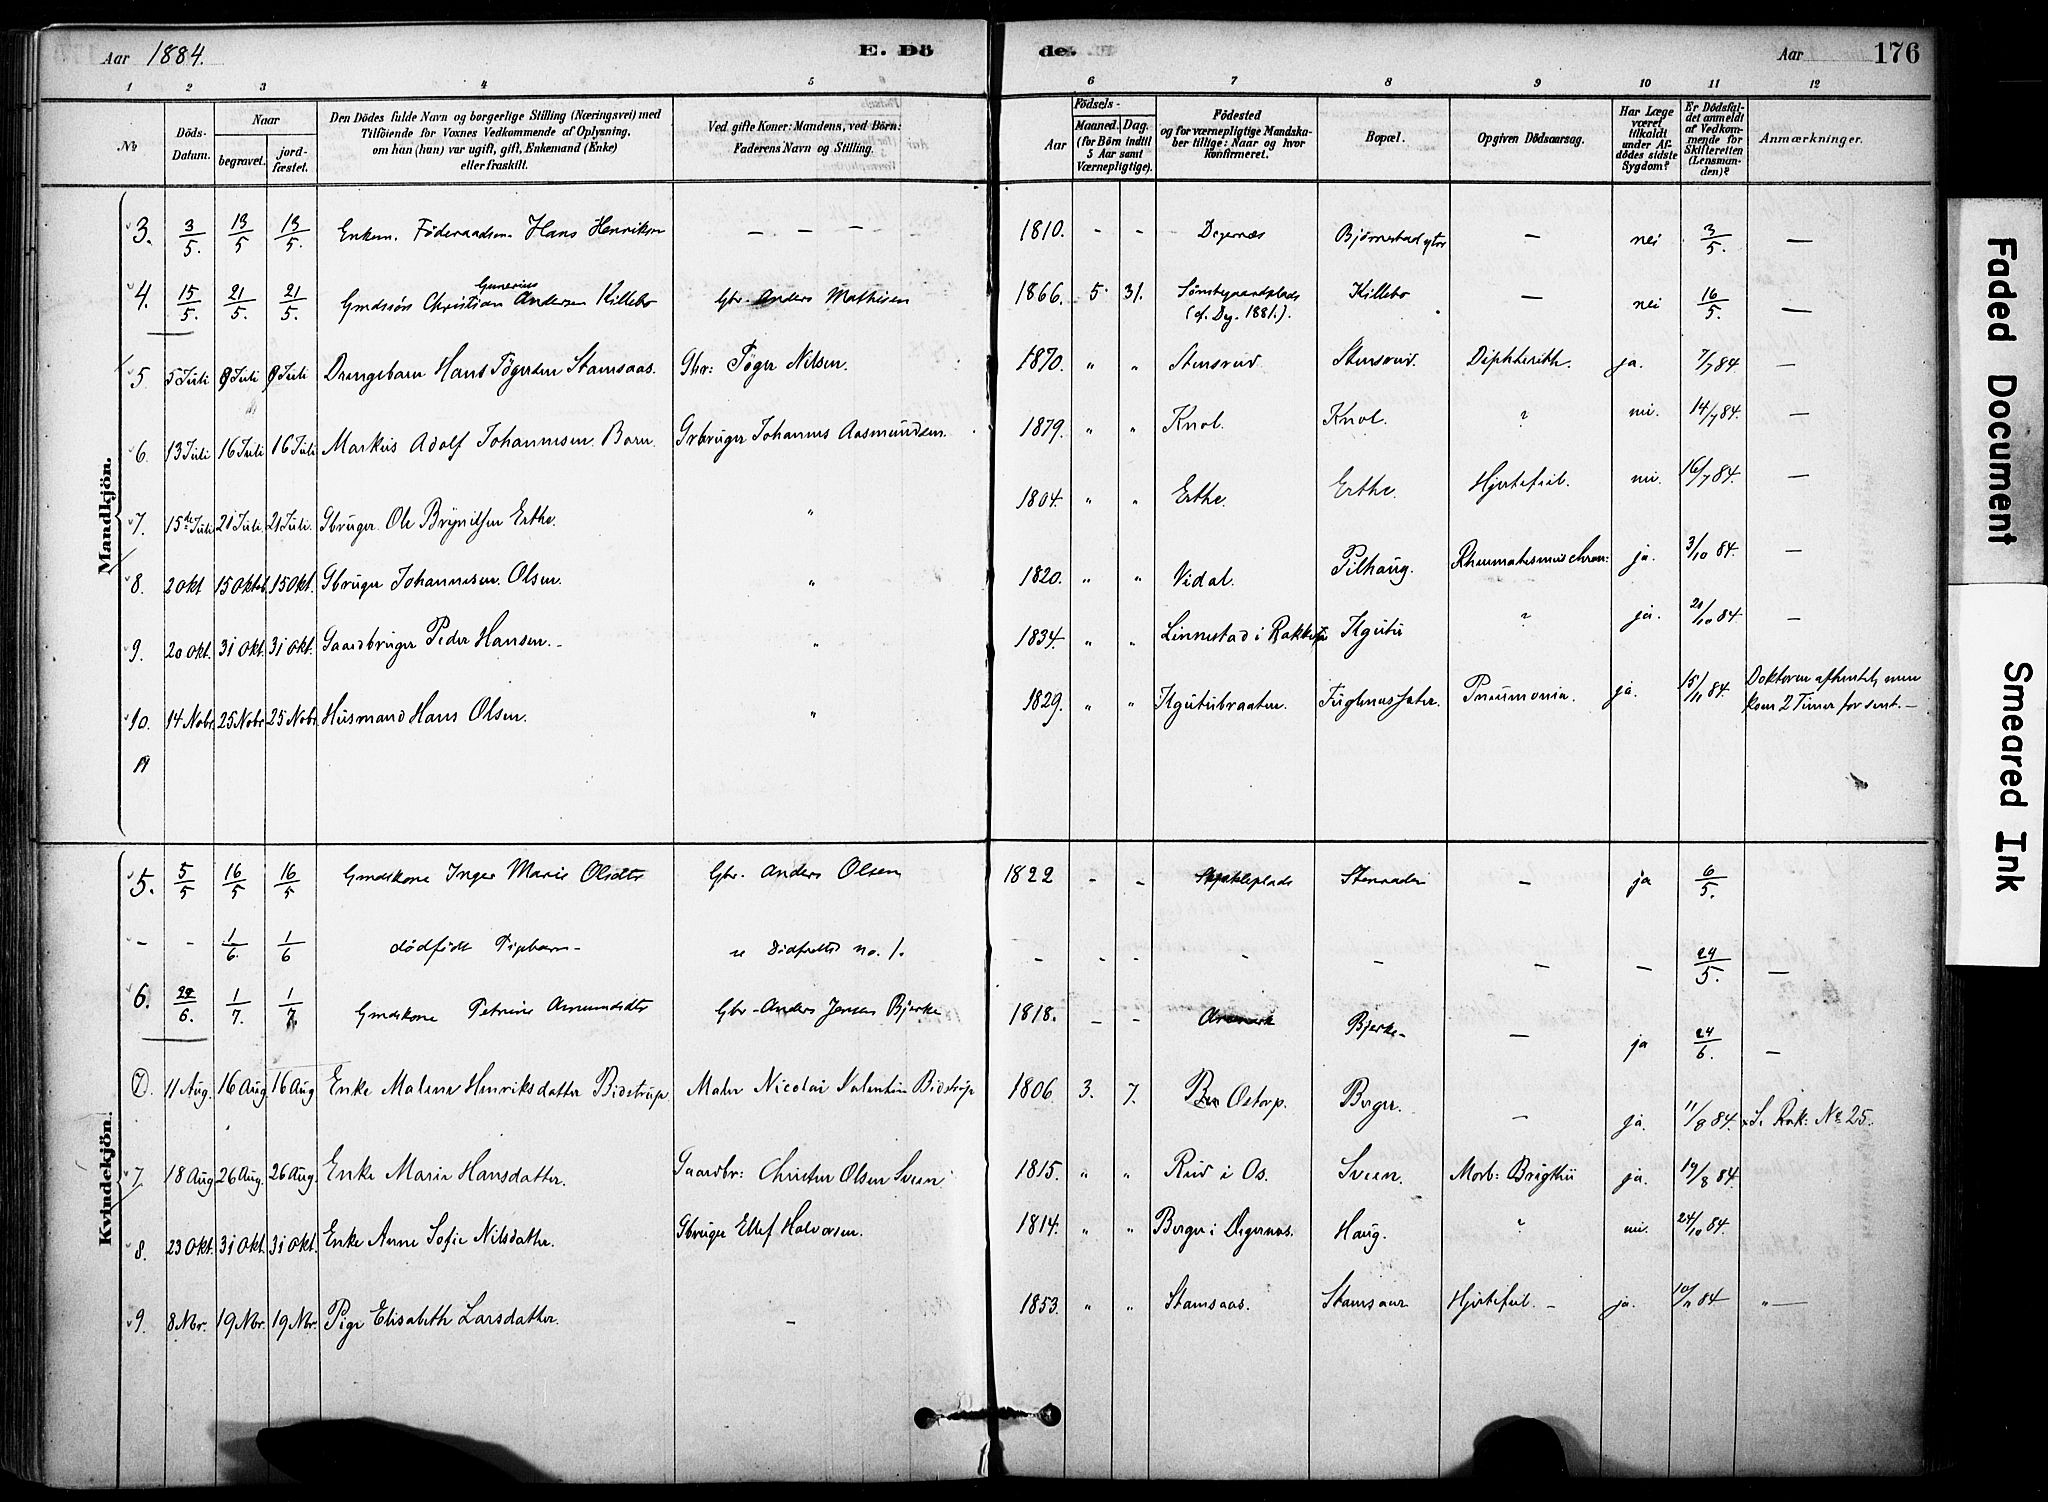 Aar 1884. E. Dö de. Aar 176
1 2 3 4 5 6 7 8 9 10 11 12
No
Döds-Datum.
Naar
begravet.
jordfæstet.
Den Dödes fulde Navn og borgerlige Stilling (Næringsvei) med
Tilföiende for Voxnes Vedkommende af Oplysning.
om han (hun) var ugift, gift, Enkemand (Enke)
eller fraskilt.
Ved gifte Koner: Mandens, ved Börn:
Faderens Navn og Stilling.
Födsels-
Aar
Maaned. Dag.
(for Börn indtil
5 Aar samt
Værnepligtige).
Födested
og for værnepligtige Mandska-
ber tillige: Naar og hvor
konfirmeret.
Bopæl.
Opgiven Dödsaarsag.
Har Læge
været
tilkaldt
under Af-
dödes sidste
Sygdom?
Er Dödsfal-
det anmeldt
af Vedkom-
mende for
Skifteretten
(Lensman-
den)?
Anmærkninger.
Mandkjön.
3. 3/5. 13/5 13/5. Enkem. Föderaadsm. Hans Henriksen — — — 1810. - - Degernæs Bjørnestad — nei 3/5. —
4. 15/5. 21/5. 21/5. Gmdssøn Christian Gunerius Andersen Killebo Gbr. Anders Mathisen 1866. 5 31. Sønstegaardplads (cf. Deg. 1881.). Killebo — nei 16/5. —
5 5 Juli 9 Juli 9 Juli Drengebarn Hans Tögersen Stamsaas. Gbr: Töger Nilsen. 1870. " " Stensrud Stensrud. Diphterith. ja. 7/7 84. —
6. 13 Juli 16 Juli 16 Juli Markus Adolf Johannesen. Barn Grbruger Johannes Aasmundsen. 1879. " " Knol. Knol. ? nei. 14/7 84. —
7. 15de Juli 21 Juli. 21 Juli. Gbruger. Ole Brynilsen Erthe. " 1804. " " Erthe. Erthe. Hjertefeil. nei. 16/7 84. —
8. 2 Okt 15 Oktob. 15 Okt. Gbruger Johannesen Olsen. " 1820. " " Vidal. Pilhaug. Rheumatismus chron: ja. 3/10 84. —
9. 20 Okt. 31 Okt. 31 Okt. Gaardbruger Peder Hansen. - " 1834. " " Linnestad i Rakkestad ? ja. 21/10 84. —
10. 14 Nobr. 25 Nobr 25 Nobr. Husmand Hans Olsen. " 1829. " " Pneumonia. ja. 15/11 84. Doktoren afhentet, men
kom 2 Timer for sent. —
11
Kvindekjön.
5. 5/5 16/5 16/5 Gmdskone Inger Marie Olsdtr Gbr. Anders Olsen 1822 - - Stenraden - ja 6/5.
- - 1/6. 1/6 dödfödt Pigebarn - no. 1. - - - - - - - 24/5. —
6. 22/6. 1/7. 1/7. Gmdskone Petrine Amundsdtr Gbr. Anders Jensen Bjerke 1818. - - Aremark Bjerke - — ja 24/6. —
7. 11 Aug. 16 Aug 16 Aug Enke Malene Henriksdatter Bidstrup. Maler Nicolai Valentin Bidstrup 1806 3. 7. Ostorp. Berger. — ja. 11/8 84. S. Rak: No 25.
7 18 Aug 26 Aug. 26 Aug. Enke Marie Hansdatter. Gaardbr: Christen Olsen Sveen 1815. " " Rud i Os. Sveen. Morb: Brigthii ja. 19/8 84.
8. 23 Okt. 31 Okt 31 Okt. Enke Anne Sofie Nilsdatter. Gbruger Ellef Halvorsen. 1814. " " Berger i Degernes. Haug. ? nei. 24/10 84.
9. 8 Nbr. 19 Nbr. 19 Nbr. Pige Elisabeth Larsdatter. - 1853. " " Stamsaas. Stamsaas Hjertefeil. - ja. 10/11 84 " —
Faded Document
Smeared Ink